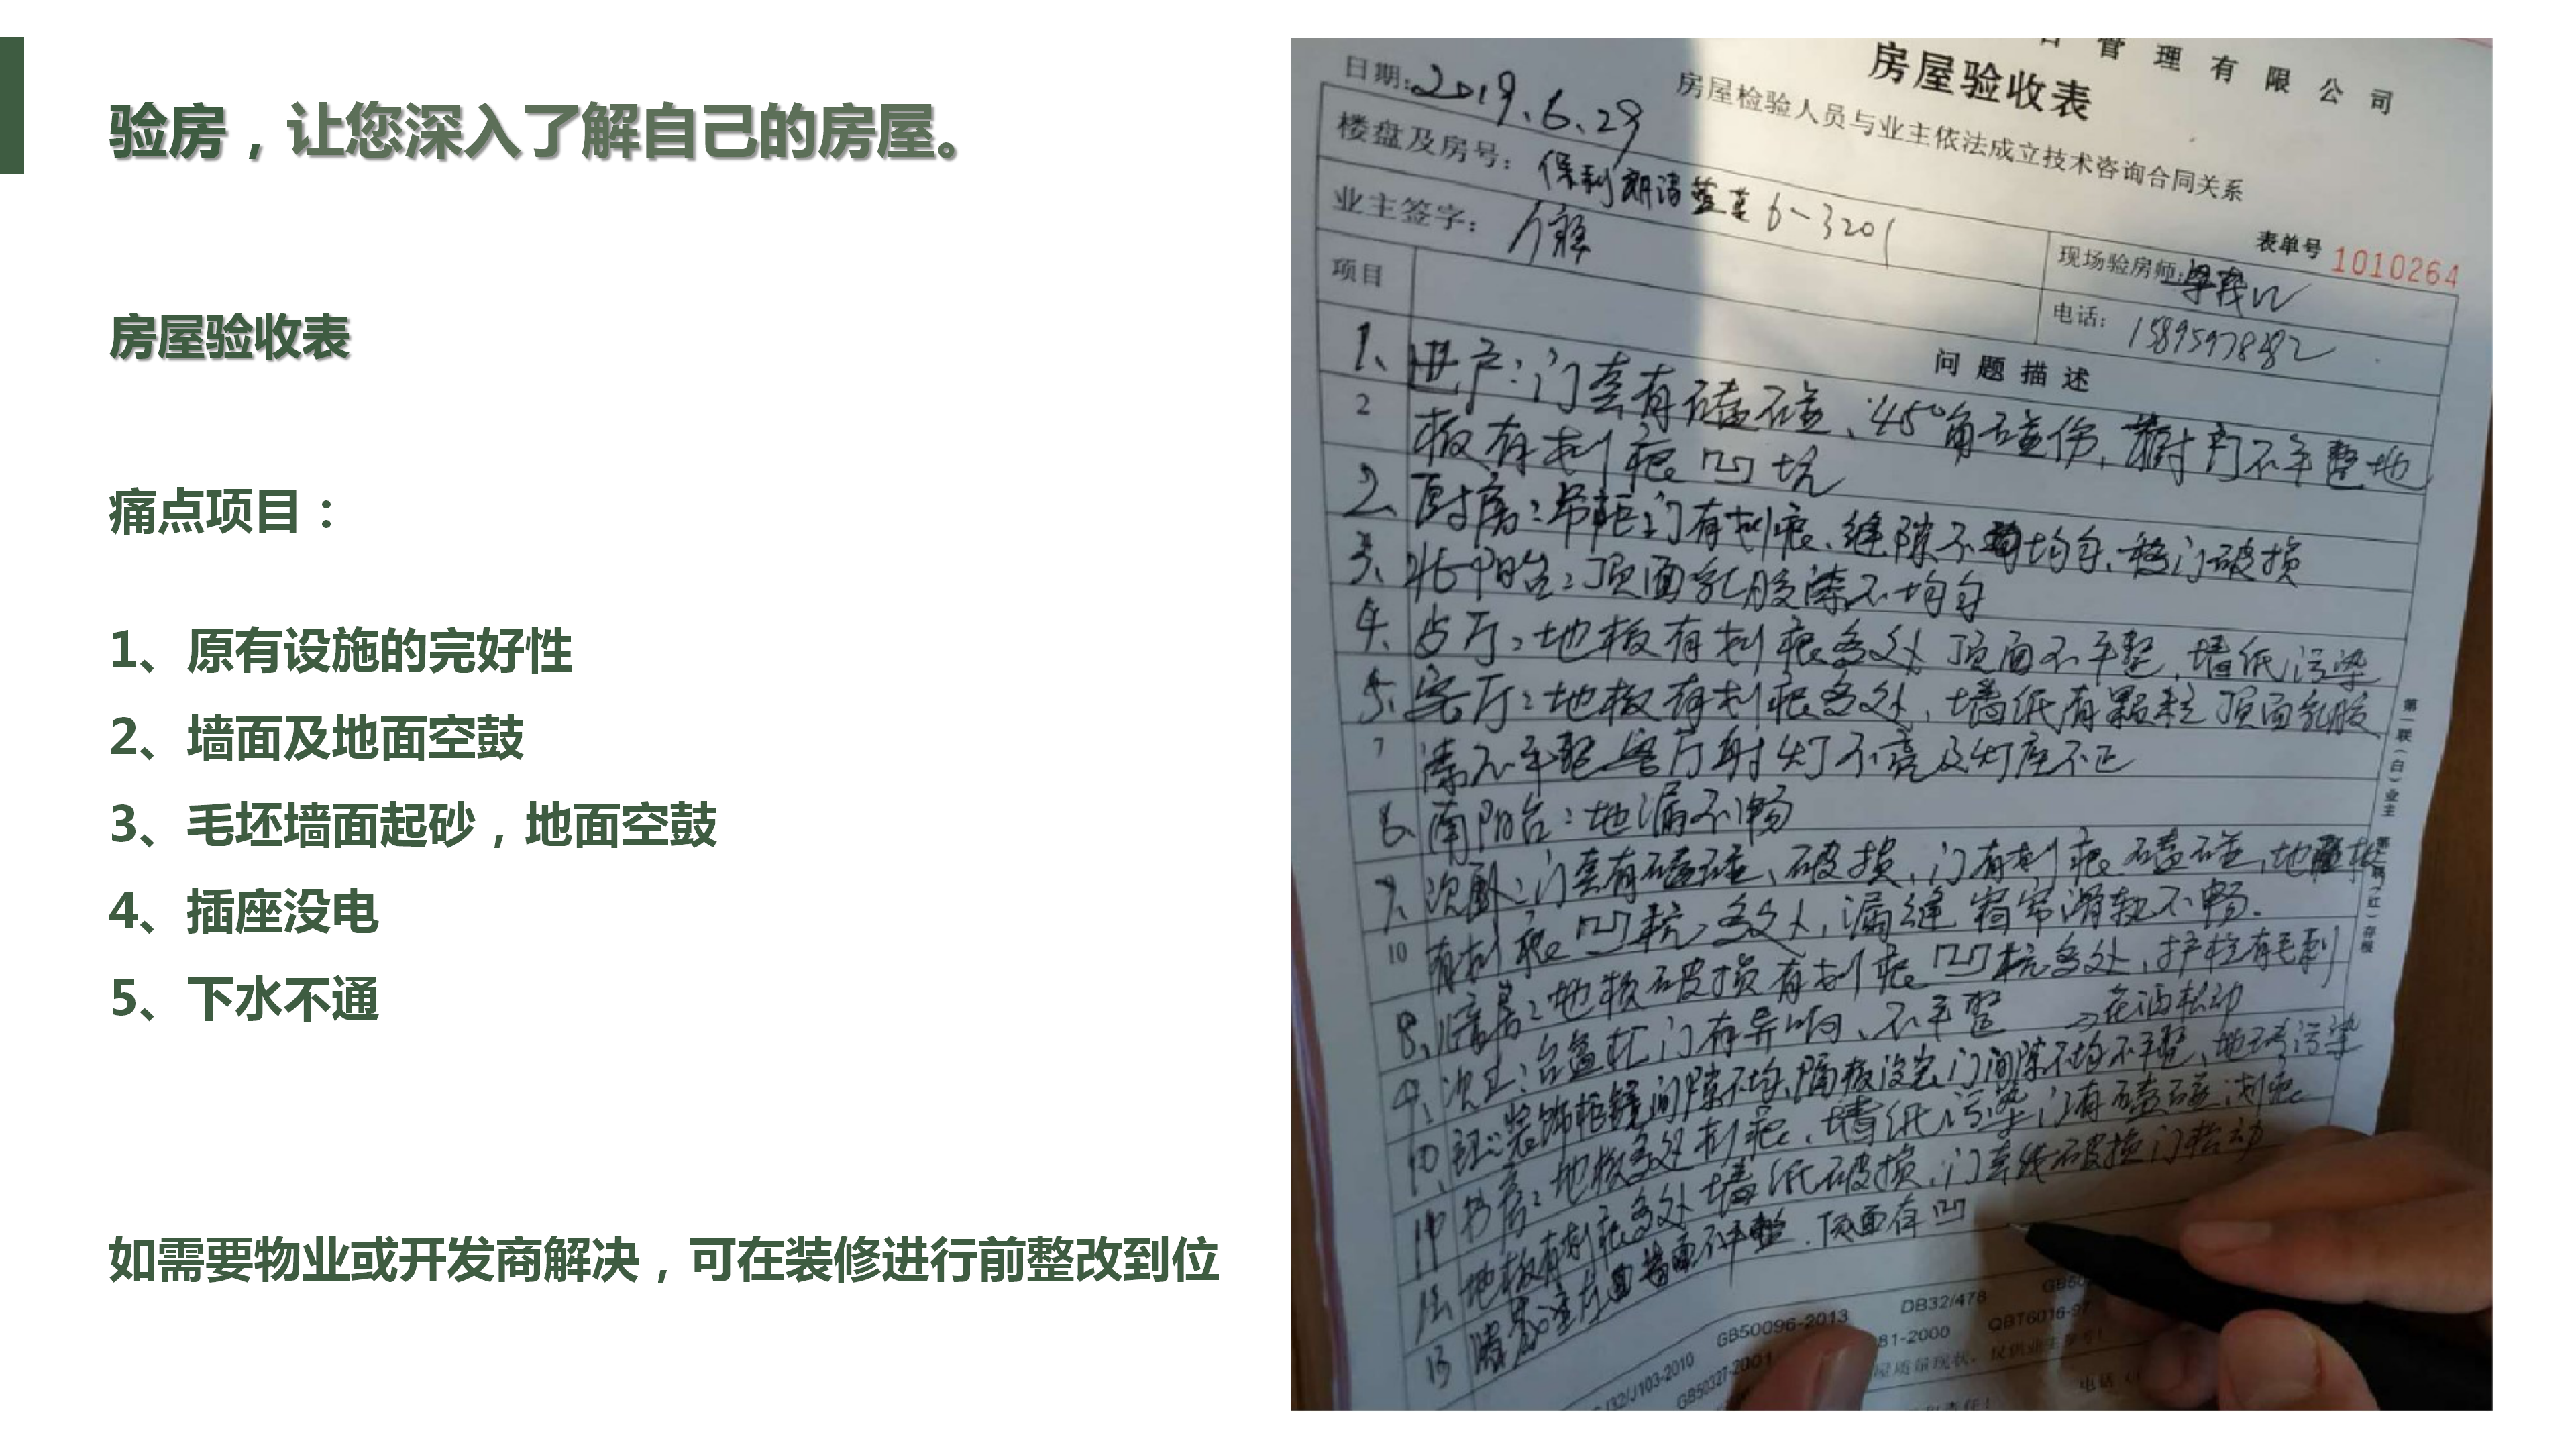 验房，让您深入了解自己的房屋。
房屋验收表
痛点项目：
1、原有设施的完好性
2、墙面及地面空鼓
3、毛坯墙面起砂，地面空鼓
4、插座没电
5、下水不通
如需要物业或开发商解决，可在装修进行前整改到位
管理有限公司
房屋验收表
日期：2019.6.29
房屋检验人员与业主依法成立技术咨询合同关系
表单号 1010264
楼盘及房号：保利朗诗蓝 6-3201
现场验房师：
业主签字：
电话：
项目
问题描述
1、进户：门套有磕碰、45°角碰伤，鞋柜门不平整地
2 板有划痕凹坑
2、厨房：吊柜门有划痕、缝隙不均匀、移门破损
3、北阳台：顶面乳胶漆不均匀
4、占厅：地板有划痕多处 顶面不平整，墙纸污染
5、客厅：地板有划痕多处，墙纸有颗粒 顶面乳胶
7 漆不平整 客厅射灯不亮及灯座不正
6、南阳台：地漏不畅
7、次卧：门套有磕碰、破损，门有划痕磕碰，地板
10 有划痕凹坑多处，漏缝 窗帘滑轨不畅.
8、地板破损有划痕凹坑多处，护栏有毛刺
9、次卫：台盆柜门有异响、不平整
10 装饰柜镜间隙不均，隔板没空，门间隙不均不平整，地污染
地板多处划痕，墙纸污染 门有磕碰 划痕
地板有划痕多处 墙纸破损，门套线破损 门松动
13 墙面不平整，顶面有凹
第一联（白）业主
（红）存根
GB50096-2013
DB32/478
QBT6016-97
32/J103-2010
GB50327-2001
81-2000